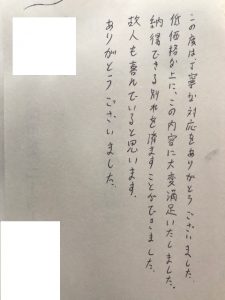 この度はご丁寧な対応をありがとうございました。
低価格な上に、この内容に大変満足いたしました。
納得できる別れを済ますことができました。
故人も喜んでいると思います。
ありがとうございました。